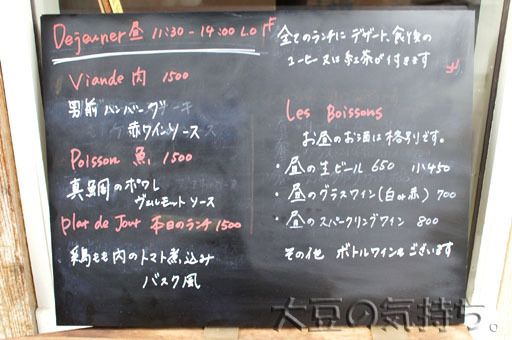 Dejeuner 昼 11:30 - 14:00 L.O
Viande 肉 1500
男前ハンバーグ
赤ワインソース
Poisson 魚 1500
真鯛のポワレ
ヴェルモットソース
plat de Jour 本日のランチ 1500
鶏もも肉のトマト煮込み
バスク風
全てのランチに デザート、食後の
コーヒー又は紅茶が付きます
Les Boissons
お昼のお酒は格別です。
・昼の生ビール 650 小450
・昼のグラスワイン(白or赤) 700
・昼のスパークリングワイン 800
その他 ボトルワインもございます
大豆の気持ち。